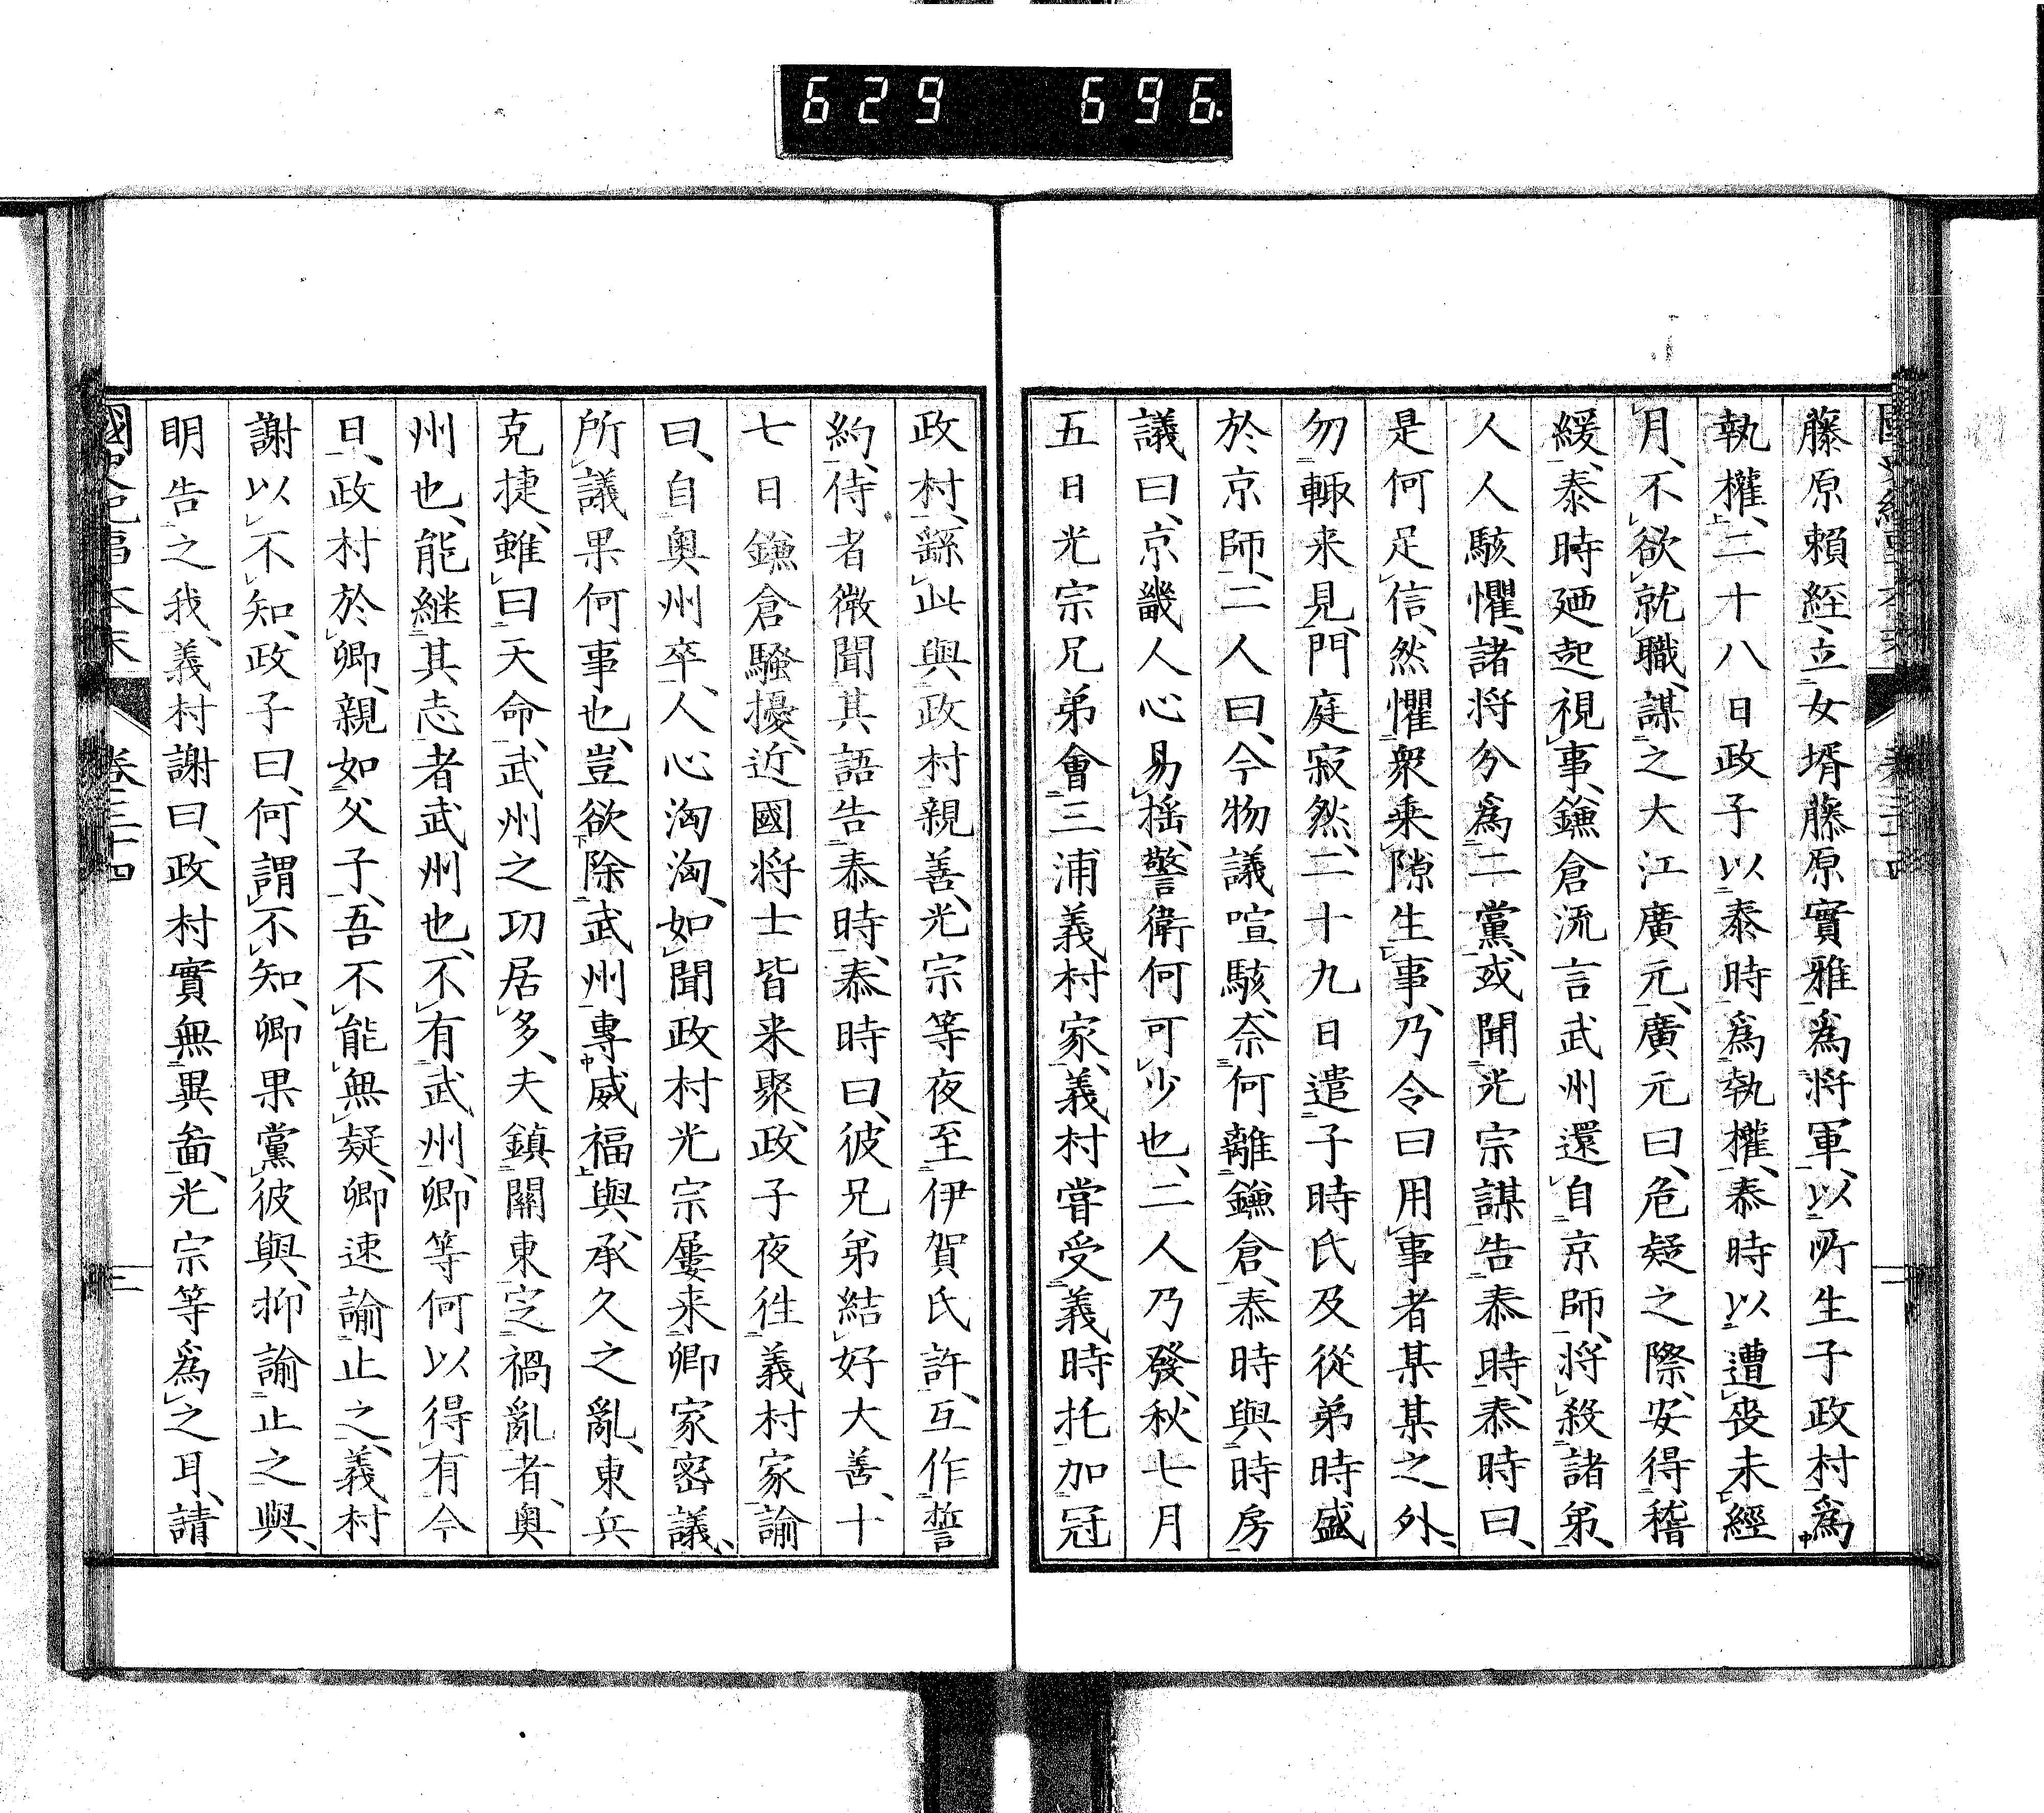 629 696.
藤原賴經、立女壻藤原實雅爲將軍、以所生子政村爲
執權、二十八日政子以泰時爲執權、泰時以遭喪未經
月、不欲就職、謀之大江廣元、廣元曰、危疑之際、安得稽
緩、泰時廼起視事、鎌倉流言武州還自京師、將殺諸弟、
人人駭懼、諸將分爲二黨、或聞光宗謀告泰時、泰時曰、
是何足信、然懼衆乗隙生事、乃令曰用事者某某之外、
勿輙来見、門庭寂然、二十九日遣子時氏及從弟時盛
於京師、二人曰、今物議喧駭、奈何離鎌倉、泰時與時房
議曰、京畿人心易搖、警衛何可少也、二人乃發、秋七月
五日光宗兄弟會三浦義村家、義村嘗受義時托加冠
政村、繇此與政村親善、光宗等夜至伊賀氏許、互作誓
約、侍者微聞其語告泰時、泰時曰、彼兄弟結好大善、十
七日鎌倉騷擾、近國將士皆来聚、政子夜往義村家諭
曰、自奥州卒、人心洶洶、如聞政村光宗屢来卿家密議、
所議果何事也、豈欲除武州專威福與、承久之亂、東兵
克捷、雖曰天命、武州之功居多、夫鎮關東定禍亂者、奥
州也、能継其志者武州也、不有武州、卿等何以得有今
日、政村於卿、親如父子、吾不能無疑、卿速諭止之、義村
謝以不知、政子曰、何謂不知、卿果黨彼與、抑諭止之與、
明告之我、義村謝曰、政村實無異啚、光宗等爲之耳、請
國史紀事本末 卷三十四 二